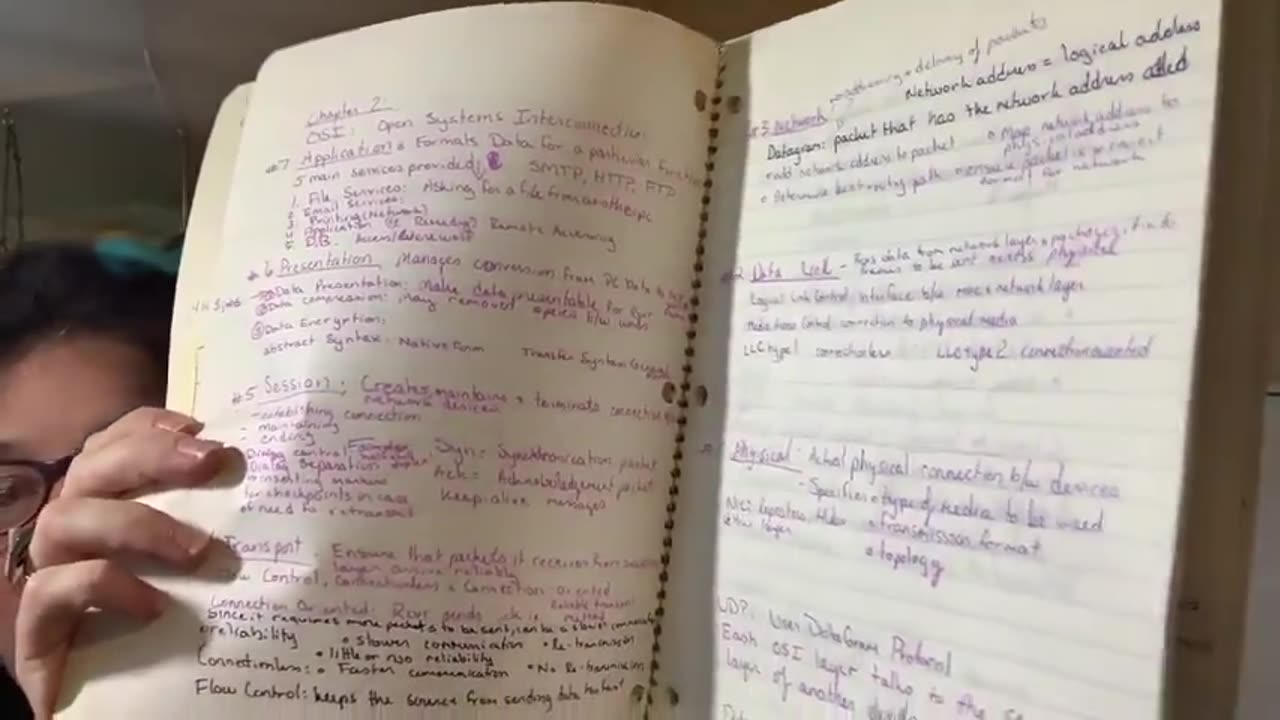 Chapter 2:
OSI: Open Systems Interconnection
#7 Application: Formats Data for a particular function
5 main services provided SMTP, HTTP, FTP
1. File Services: Asking for a file from another pc
2. Email Services:
3. Printing (Network)
4. Application Remote Accessing
5. D.B.
#6 Presentation Manages conversion from PC Data to
Data Presentation: Make data presentable for
② Data compression: May remove spaces b/w
③ Data Encryption:
abstract Syntax: Native Form Transfer Syntax
#5 Session: Creates, maintains + terminates connection
network devices
- establishing connection
- maintaining
- ending
Dialog control Syn = Synchronization packet
Dialog Separation
inserting markers Ack = Acknowledgement packet
for checkpoints in case Keep alive messages
of need to retransmit
Transport - Ensures that packets it receives from
layer arrive reliably
Flow Control, Connectionless + Connection oriented
Connection Oriented: Reliable transmit
Since it requires more packets to be sent, can be a slower
reliability • slower communication • Re-transmission
• little or no reliability
Connectionless: • Faster communication • No Re-transmission
Flow Control: keeps the source from sending data too fast
#3 Network delivery of packets
Network address = logical address
Datagram: packet that has the network address added
• add network address to packet • Map network address to
physical address
• Determine best routing path • ensure packet is in correct
format for network
#2 Data Link - data from network layer + packages it in
frames to be sent across physical
Logical Link Control: interface b/w mac + network layer
Media Access Control: connection to physical media
LLC type 1 connectionless LLC type 2 connection oriented
Physical: Actual physical connection b/w devices
- Specifies • type of Media to be used
• transmission format
• topology
UDP: User DataGram Protocol
Each OSI layer talks to the
layer of another